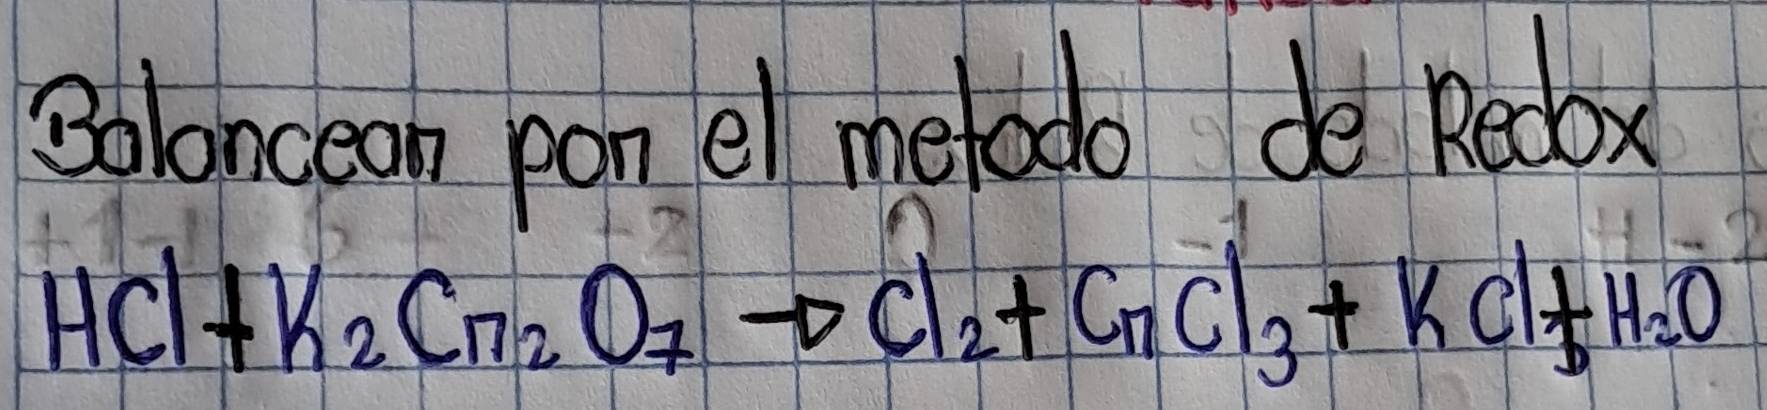 Balancear por el metodo de Redox
+1 -1 -2 0 -1 +1 -2
HCl + K₂Cr₂O₇ → Cl₂ + CrCl₃ + KCl + H₂O